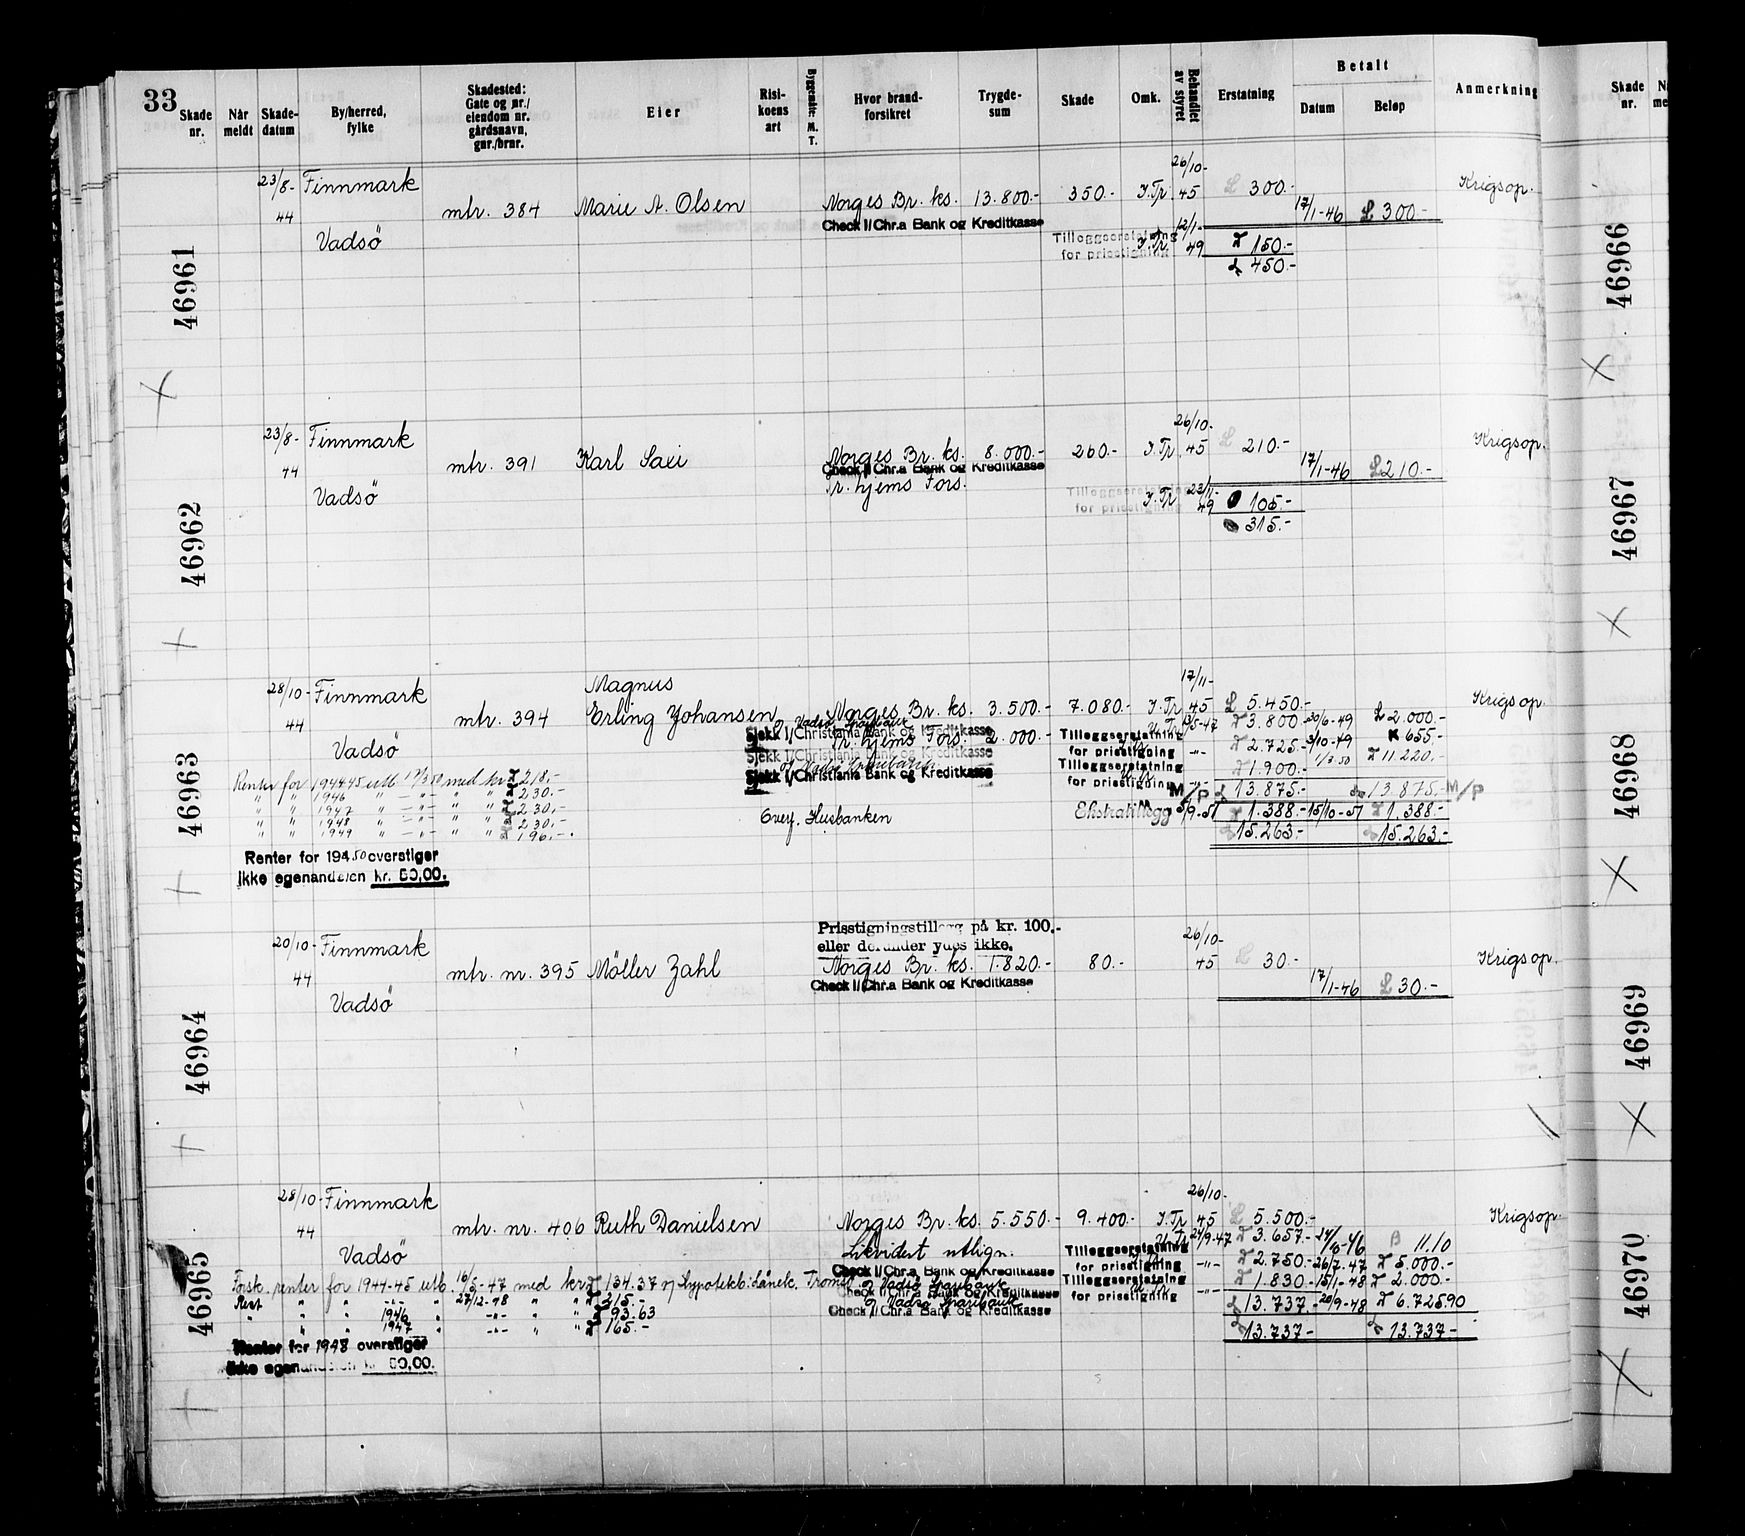 33
Skade nr.
Når meldt
Skade-datum
By/herred, fylke
Skadested: Gate og nr./ eiendom nr. gårdsnavn, gnr./brnr.
Eier
Risi-koens art
Byggemåte: M. T.
Hvor brand-forsikret
Trygde-sum
Skade
Omk.
Behandlet av styret
Erstatning
Betalt
Datum
Beløp
Anmerkning
Skade nr.
46961
23/8- Finnmark 26/10-
44 mtr. 384 Marie A. Olsen Norges Br. ks. 13.800.- 350.- J.Tr. 45 300.- Krigsop.
17/1-46 300.-
Vadsö Check I/Chr.a Bank og Kreditkasse
Tilleggserstatning for prisstigning J.Tr 12/1-49 150.-
450.-
46966
46962
23/8- Finnmark 26/10-
44 mtr. 391 Karl Saxi Norges Br. ks. 8.000.- 260.- J.Tr. 45 210.- Krigsop.
Check I/Chr.a Bank og Kreditkasse 17/1-46 210.-
Vadsö Tr.hjems Fors.
Tilleggserstatning for prisstigning J.Tr 23/11-49 105.-
315.-
46967
46963
28/10- Finnmark Magnus 17/11-
44 mtr. 394 Erling Johansen Norges Br. ks. 3.500.- 7.080.- J.Tr. 45 5.450.- Krigsop.
Vadsö Tr.hjems Fors. 2.000.-
Vadsø Sparebank
Sjekk I/Christiania Bank og Kreditkasse
Sjekk I/Christiania Bank og Kreditkasse
Sjekk I/Christiania Bank og Kreditkasse
Tilleggserstatning for prisstigning 13/5-47 3.800.- 30/6-49 2.000.-
-"- 2.725.- 3/10-49 655-
Tilleggserstatning for prisstigning -"- 1.900.- 1/3.50 11.220.-
M/P 13.875.- 13.875.- M/P
Overf. Husbanken
Ekstratillegg 5/9-51 1.388.- 15/10-51 1.388.-
15.263.- 15.263.-
Renter for 1944-45 utb. 17/3.50 med kr 218,-
" " 1946 " -"- " " 230,-
" " 1947 " -"- " " 230,-
" " 1948 " -"- " " 230,-
" " 1949 " -"- " " 196,-
Renter for 194.50 overstiger
ikke egenandelen kr. 50,00.
46968
46964
Prisstigningstillegg på kr. 100.-
eller derunder ydes ikke.
20/10- Finnmark 26/10-
44 mtr. nr. 395 Möller Zahl Norges Br. ks. 1.820.- 80.- 45 30.- Krigsop.
Check I/Chr.a Bank og Kreditkasse 17/1-46 30.-
Vadsö
46969
46965
28/10- Finnmark 26/10-
44 mtr. nr. 406 Ruth Danielsen Norges Br. ks. 5.550.- 9.400.- J.Tr. 45 5.500.- Krigsop.
Vadsö Likvidert utlign.
Check I/Chr.a Bank og Kreditkasse
Vadsø Sparebank
Check I/Chr.a Bank og Kreditkasse
Vadsø Sparebank
Check I/Chr.a Bank og Kreditkasse
Tilleggserstatning for prisstigning 24/9-47 3.657.- 11.10
-"- 2.750.- 26/7-47 5.000.-
Tilleggserstatning for prisstigning -"- 1.830.- 15/1-48 2.000.-
13.737.- 20/9-48 6.725.90
13.737.- 13.737.-
Forsk. renter for 1944-45 utb. 16/5-47 med kr 134.37 Hypotekb. Lånek. Tromsø
Rest " " -"- " 27/12-48 " " 215.-
" " " 1946 " -"- " " 93.63
" " " 1947 " -"- " " 165.-
Renter for 1948 overstiger
ikke egenandelen kr. 50,00.
46970